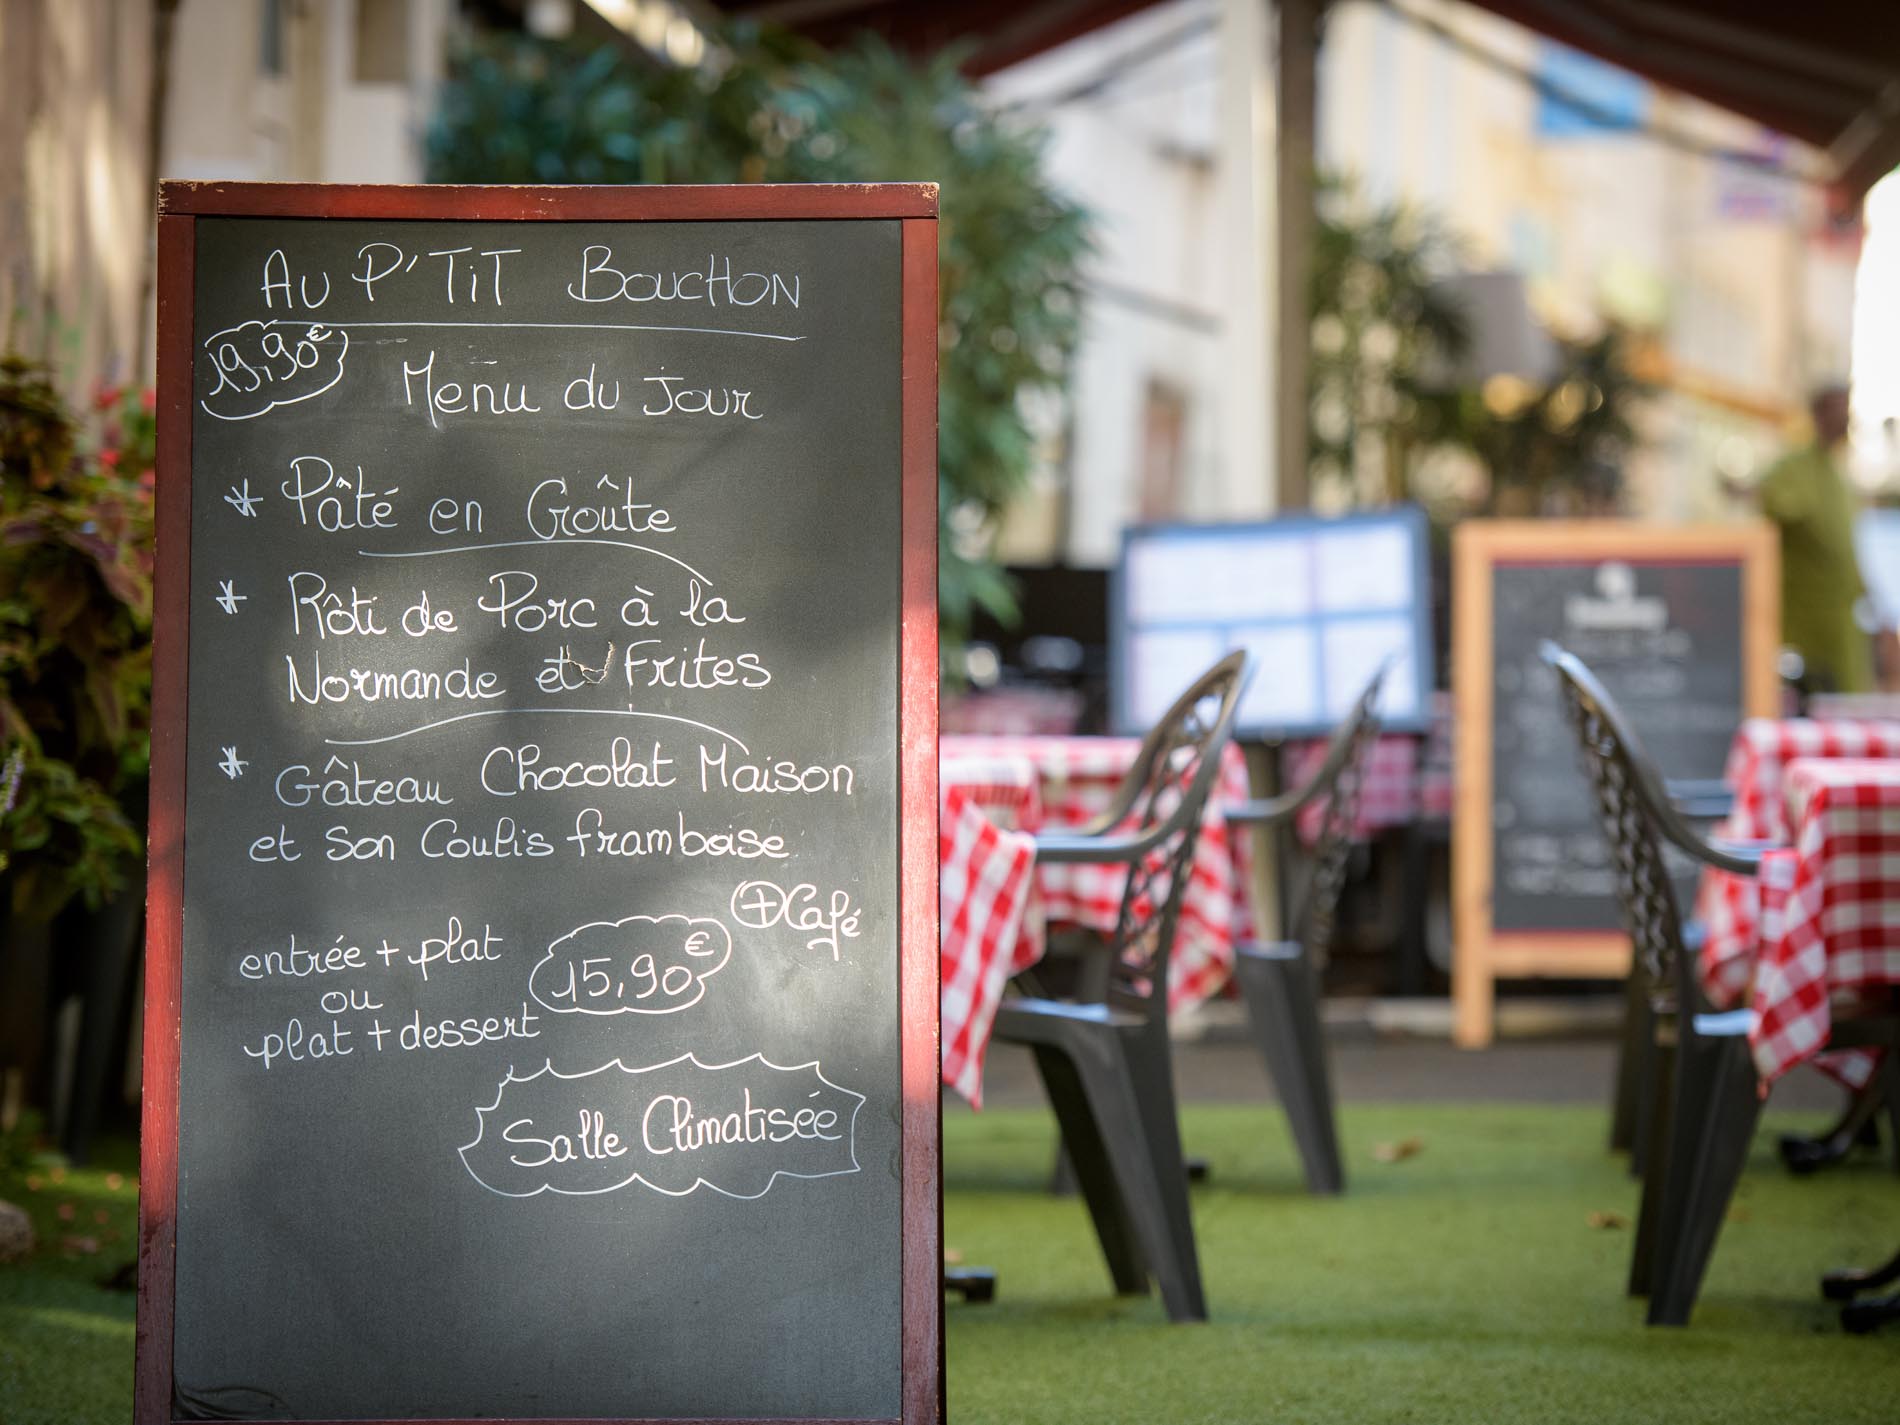 Au P'Tit Bouchon
19,90€
Menu du Jour
* Pâté en Groûte
* Rôti de Porc à la
Normande et Frites
* Gâteau Chocolat Maison
et Son Coulis framboise
+ Café
entrée + plat
ou
plat + dessert
15,90€
Salle Climatisée